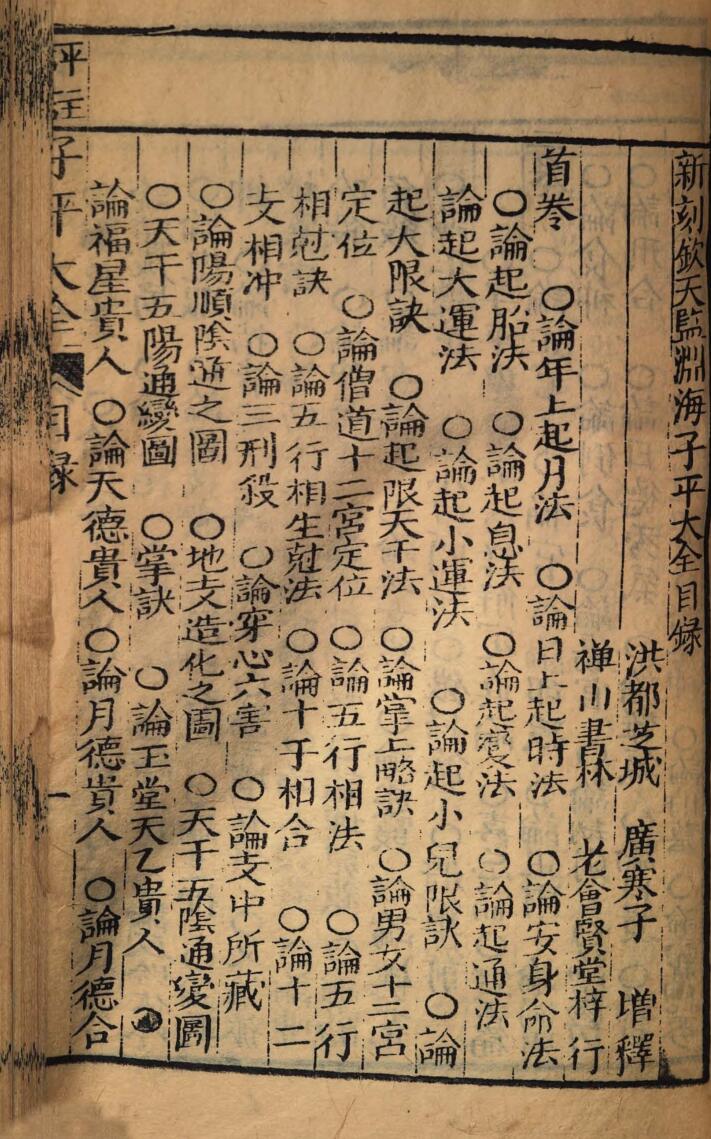 新刻欽天監淵海子平大全目録
洪都芝城 廣寒子 增釋
禅山書林 老會賢堂梓行
首卷 〇論年上起月法 〇論日上起時法 〇論安身命法
〇論起胎法 〇論起息法 〇論起變法 〇論起通法
論起大運法 〇論起小運法 〇論起小兒限訣 〇論
起大限訣 〇論起限天干法 〇論掌上略訣 〇論男女十二宮
定位 〇論僧道十二宮定位 〇論五行相法 〇論五行
相尅訣 〇論五行相生尅法 〇論十干相合 〇論十二
支相冲 〇論三刑殺 〇論穿心六害 〇論支中所藏
〇論陽順陰逆之圖 〇地支造化之圖 〇天干五陰通變圖
〇天干五陽通變圖 〇掌訣 〇論玉堂天乙貴人 〇
論福星貴人 〇論天德貴人 〇論月德貴人 〇論月德合
評註子平大全 目録 一